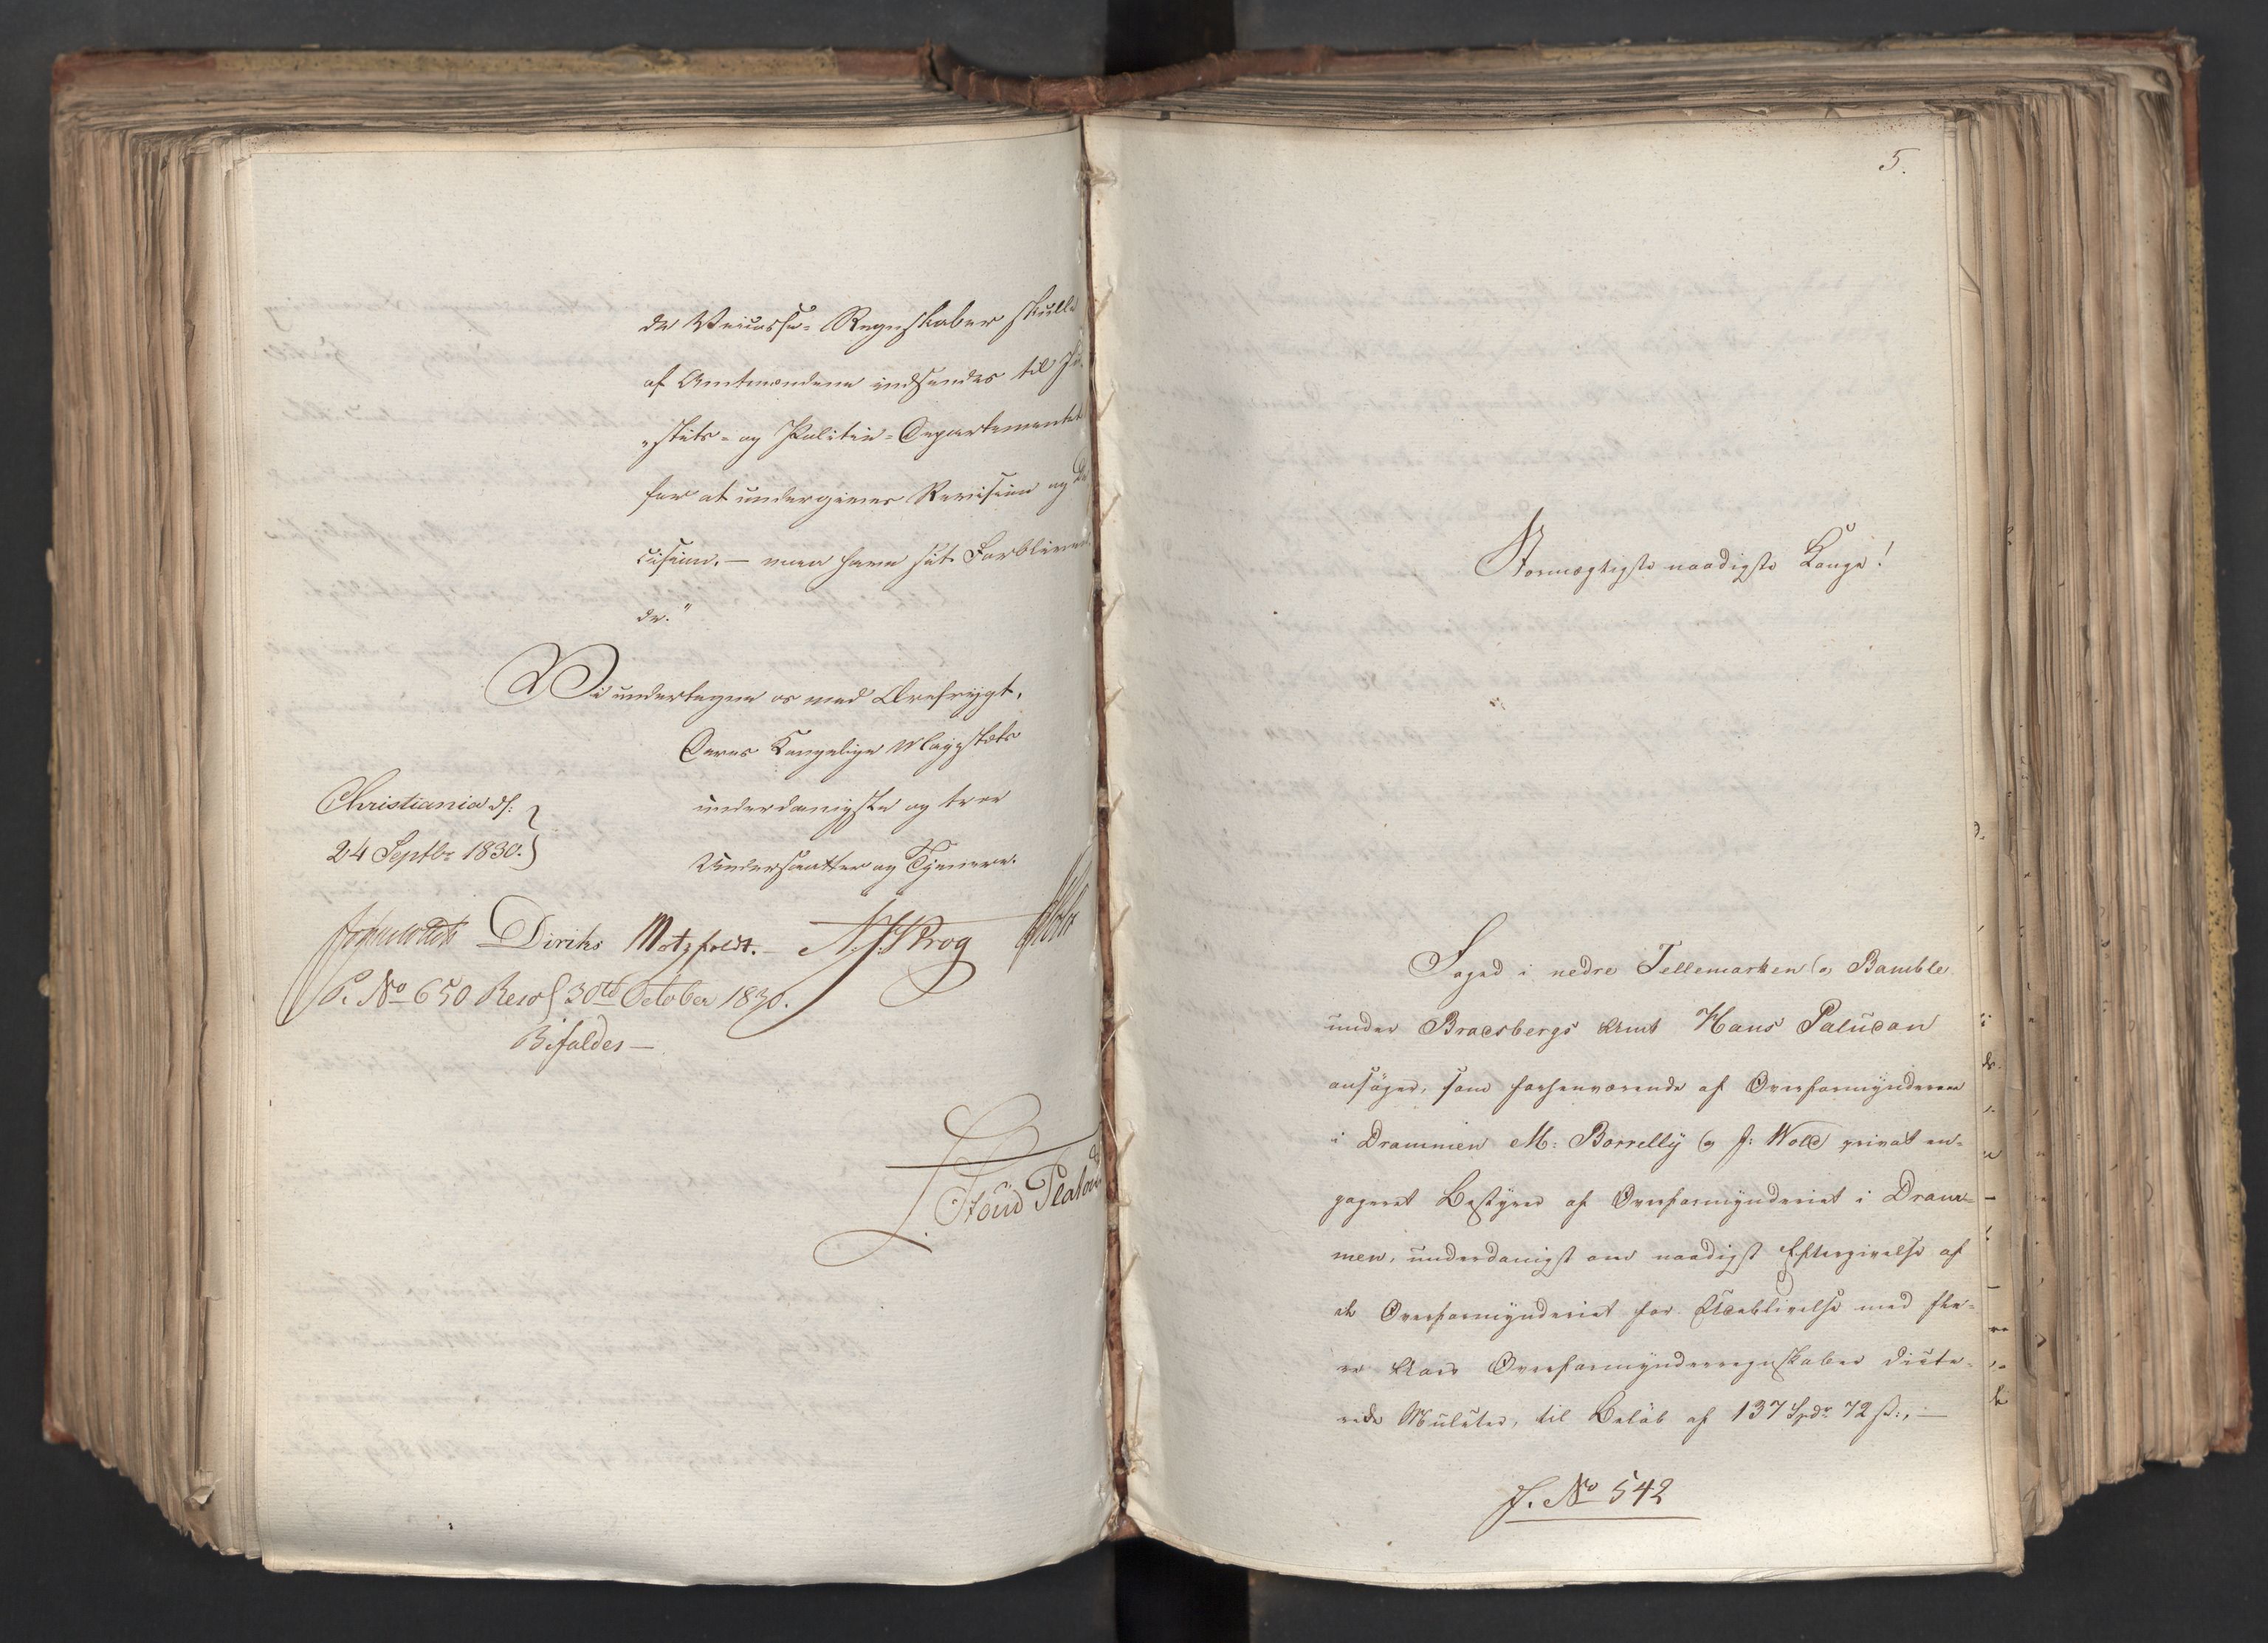 de Veicasse-Regnskaber skulle
af Amtmændene indsendes til Ju-
"stits- og Politie-Departementet
for at undergives Revision og De-
cision. — maa have sit Forbliven-
de."
Vi undertegne os med Ærefrygt,
Deres Kongelige Majestæts
underdanigste og troe
Undersaatter og Tjenere.
Christiania d:
24 Septbr 1830.
Diriks Motzfeldt. Krog
P. No 650 Resol 30te October 1830.
Bifaldes —
Stoud Platou
5.
Stormægtigste naadigste Konge!
Foged i nedre Tellemarken og Bamble
under Bradsbergs Amt Hans Paludan
ansøger, som forhenværende af Overformynderne
i Drammen M: Borrelly og J: Wold privat en-
gageret Bestyrer af Overformynderiet i Dram-
men, underdanigst om naadigst Eftergivelse af
de Overformynderiet for Udeblivelse med fle-
re Aars Overformynderregnskaber dicte-
rede Mulcter, til Beløb af 137 Spdr 72 ß:, —
J. No 542